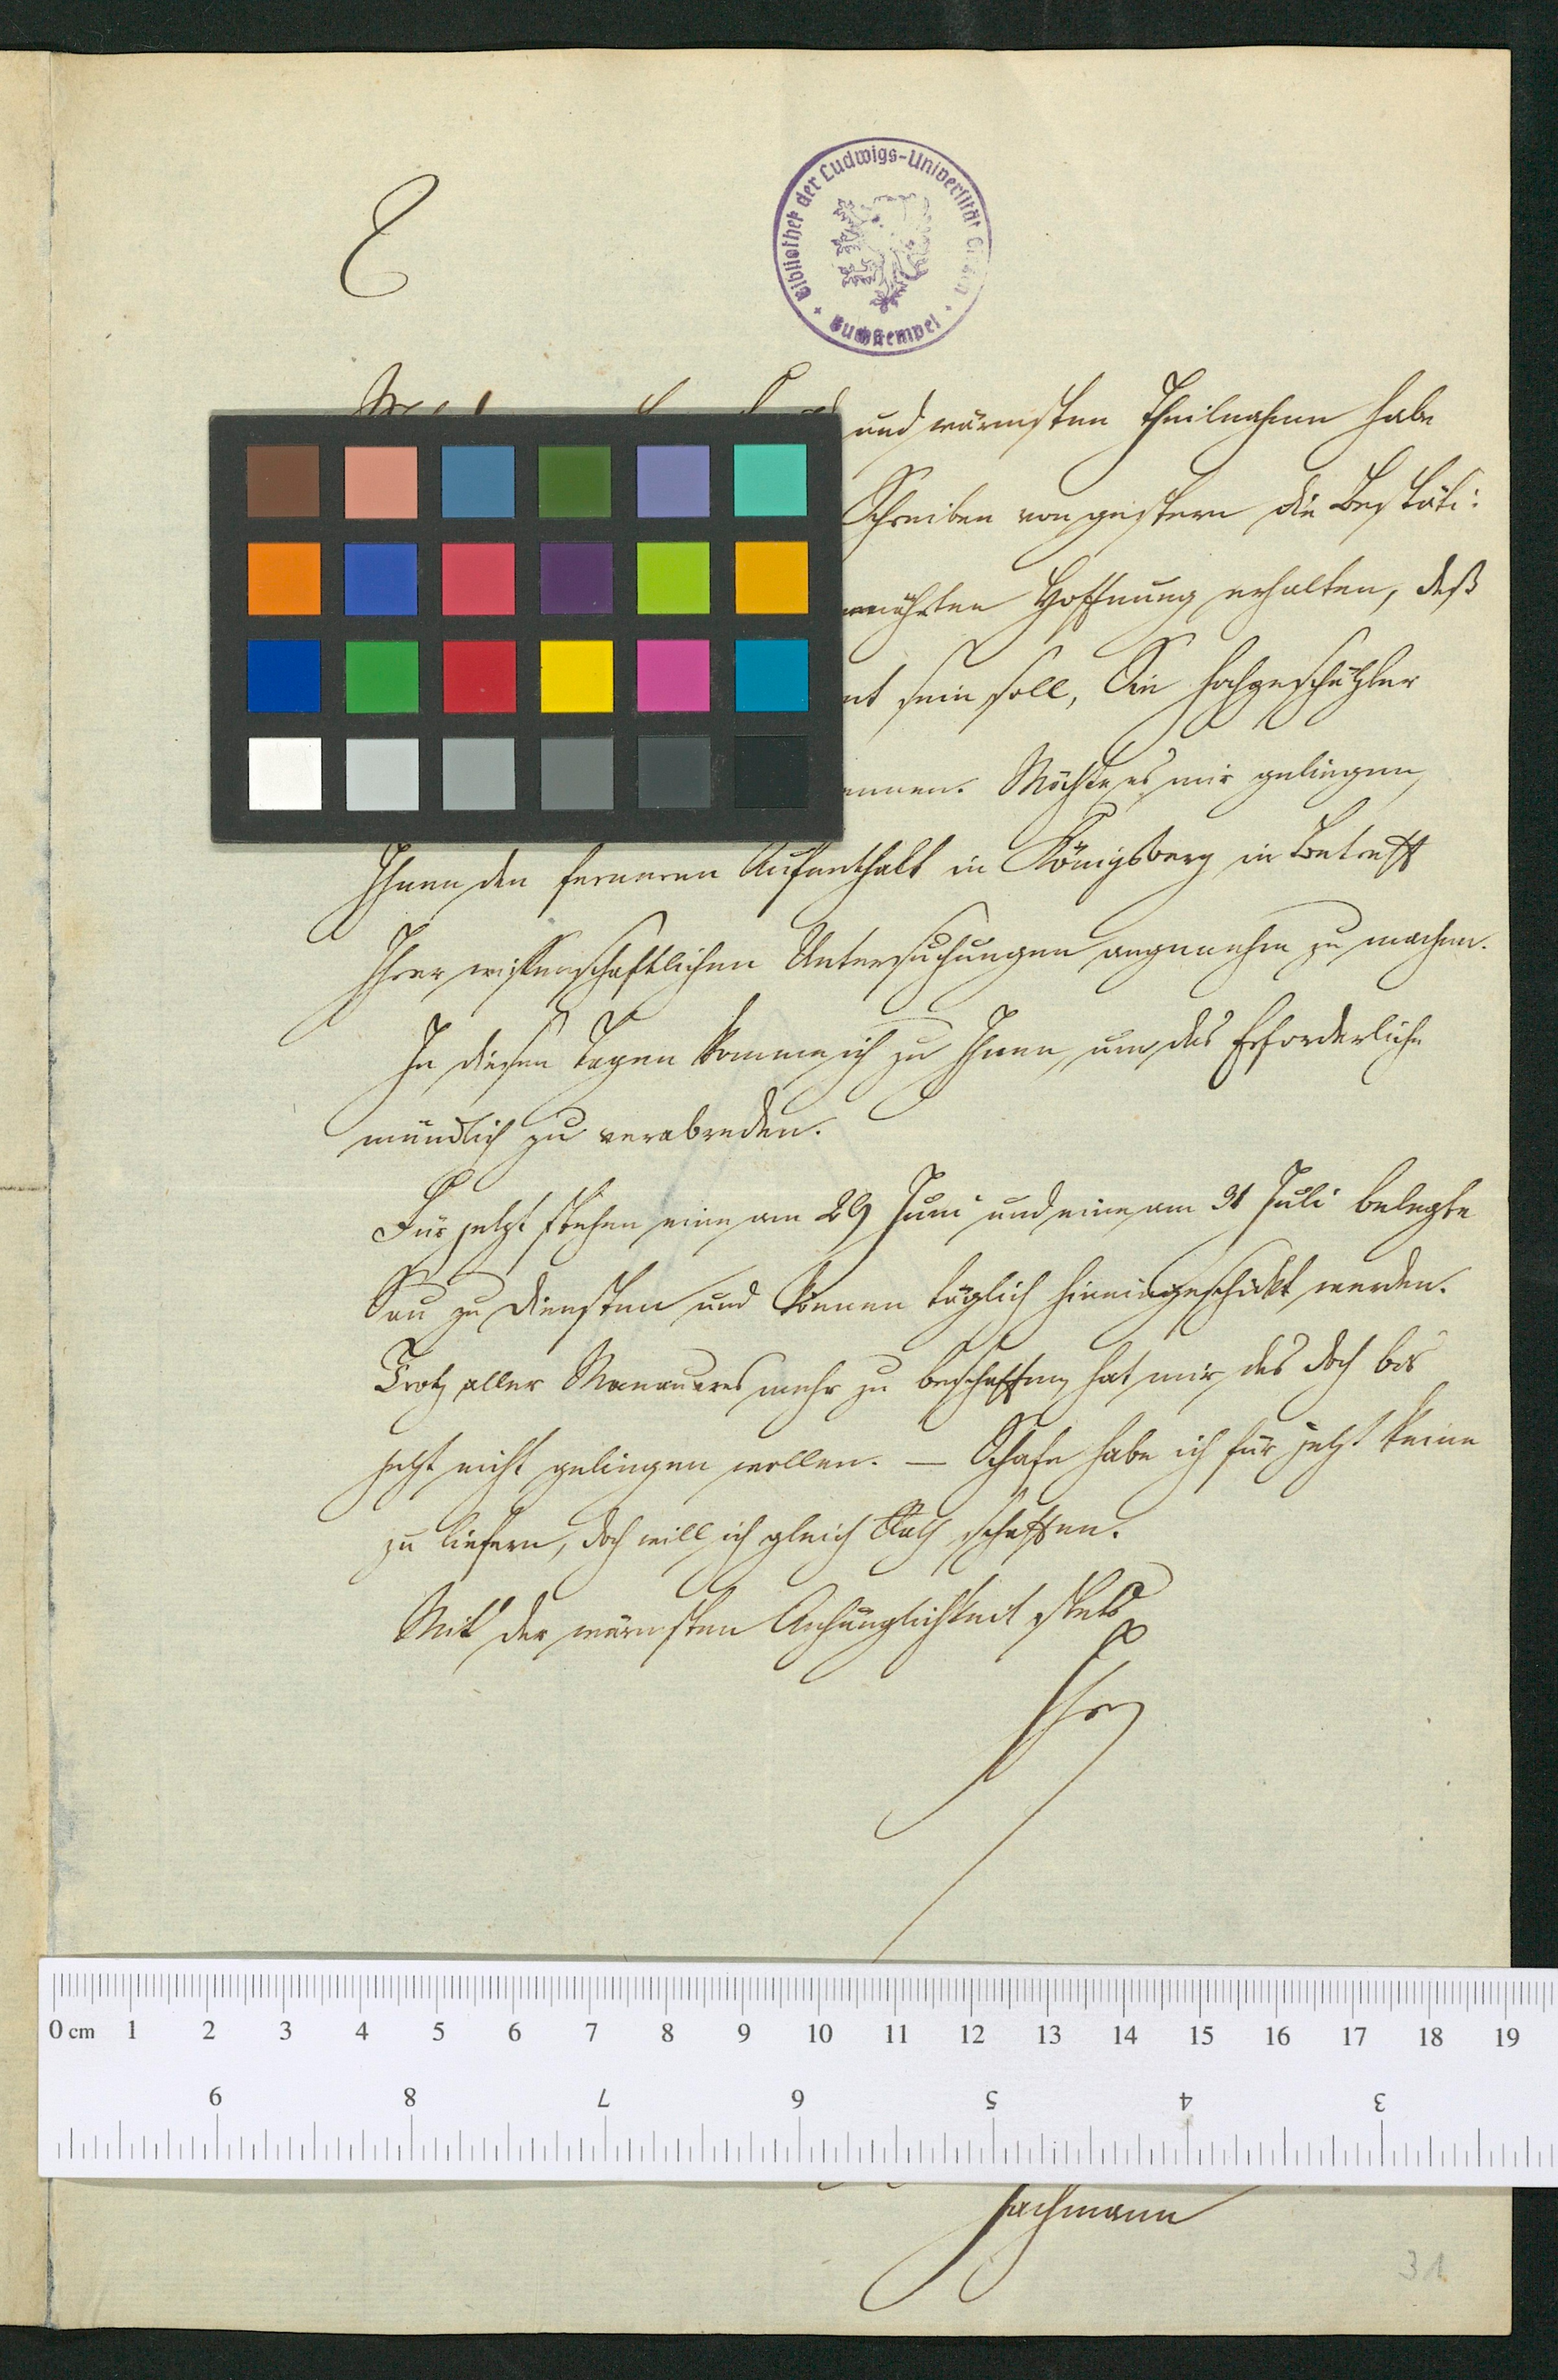 Bibliothek der Ludwigs-Universität Giessen
Buchstempel
und wärmsten Theilnahme habe
Schreiben von gestern die Bestäti:
Hoffnung erhalten, daß
sein soll, Sie hochgeschätzter
Möchte es mir gelingen,
Ihnen den ferneren Aufenthalt in Königsberg in Betreff
Ihrer wissenschaftlichen Untersuchungen angenehm zu machen.
In diesen Tagen komme ich zu Ihnen, um das Erforderliche
mündlich zu verabreden.
Für jetzt stehen eine am 29 Juni und eine am 31 Juli belegte
Sau zu Diensten und können täglich hineingeschickt werden.
Trotz aller Manoeuvres mehr zu beschaffen hat mir das doch bis
jetzt nicht gelingen wollen. — Schafe habe ich für jetzt keine
zu liefern, doch will ich gleich Rath schaffen.
Mit der wärmsten Anhänglichkeit stets
Ihr
0 cm 1 2 3 4 5 6 7 8 9 10 11 12 13 14 15 16 17 18 19
9 8 7 6 5 4 3
Jachmann
31